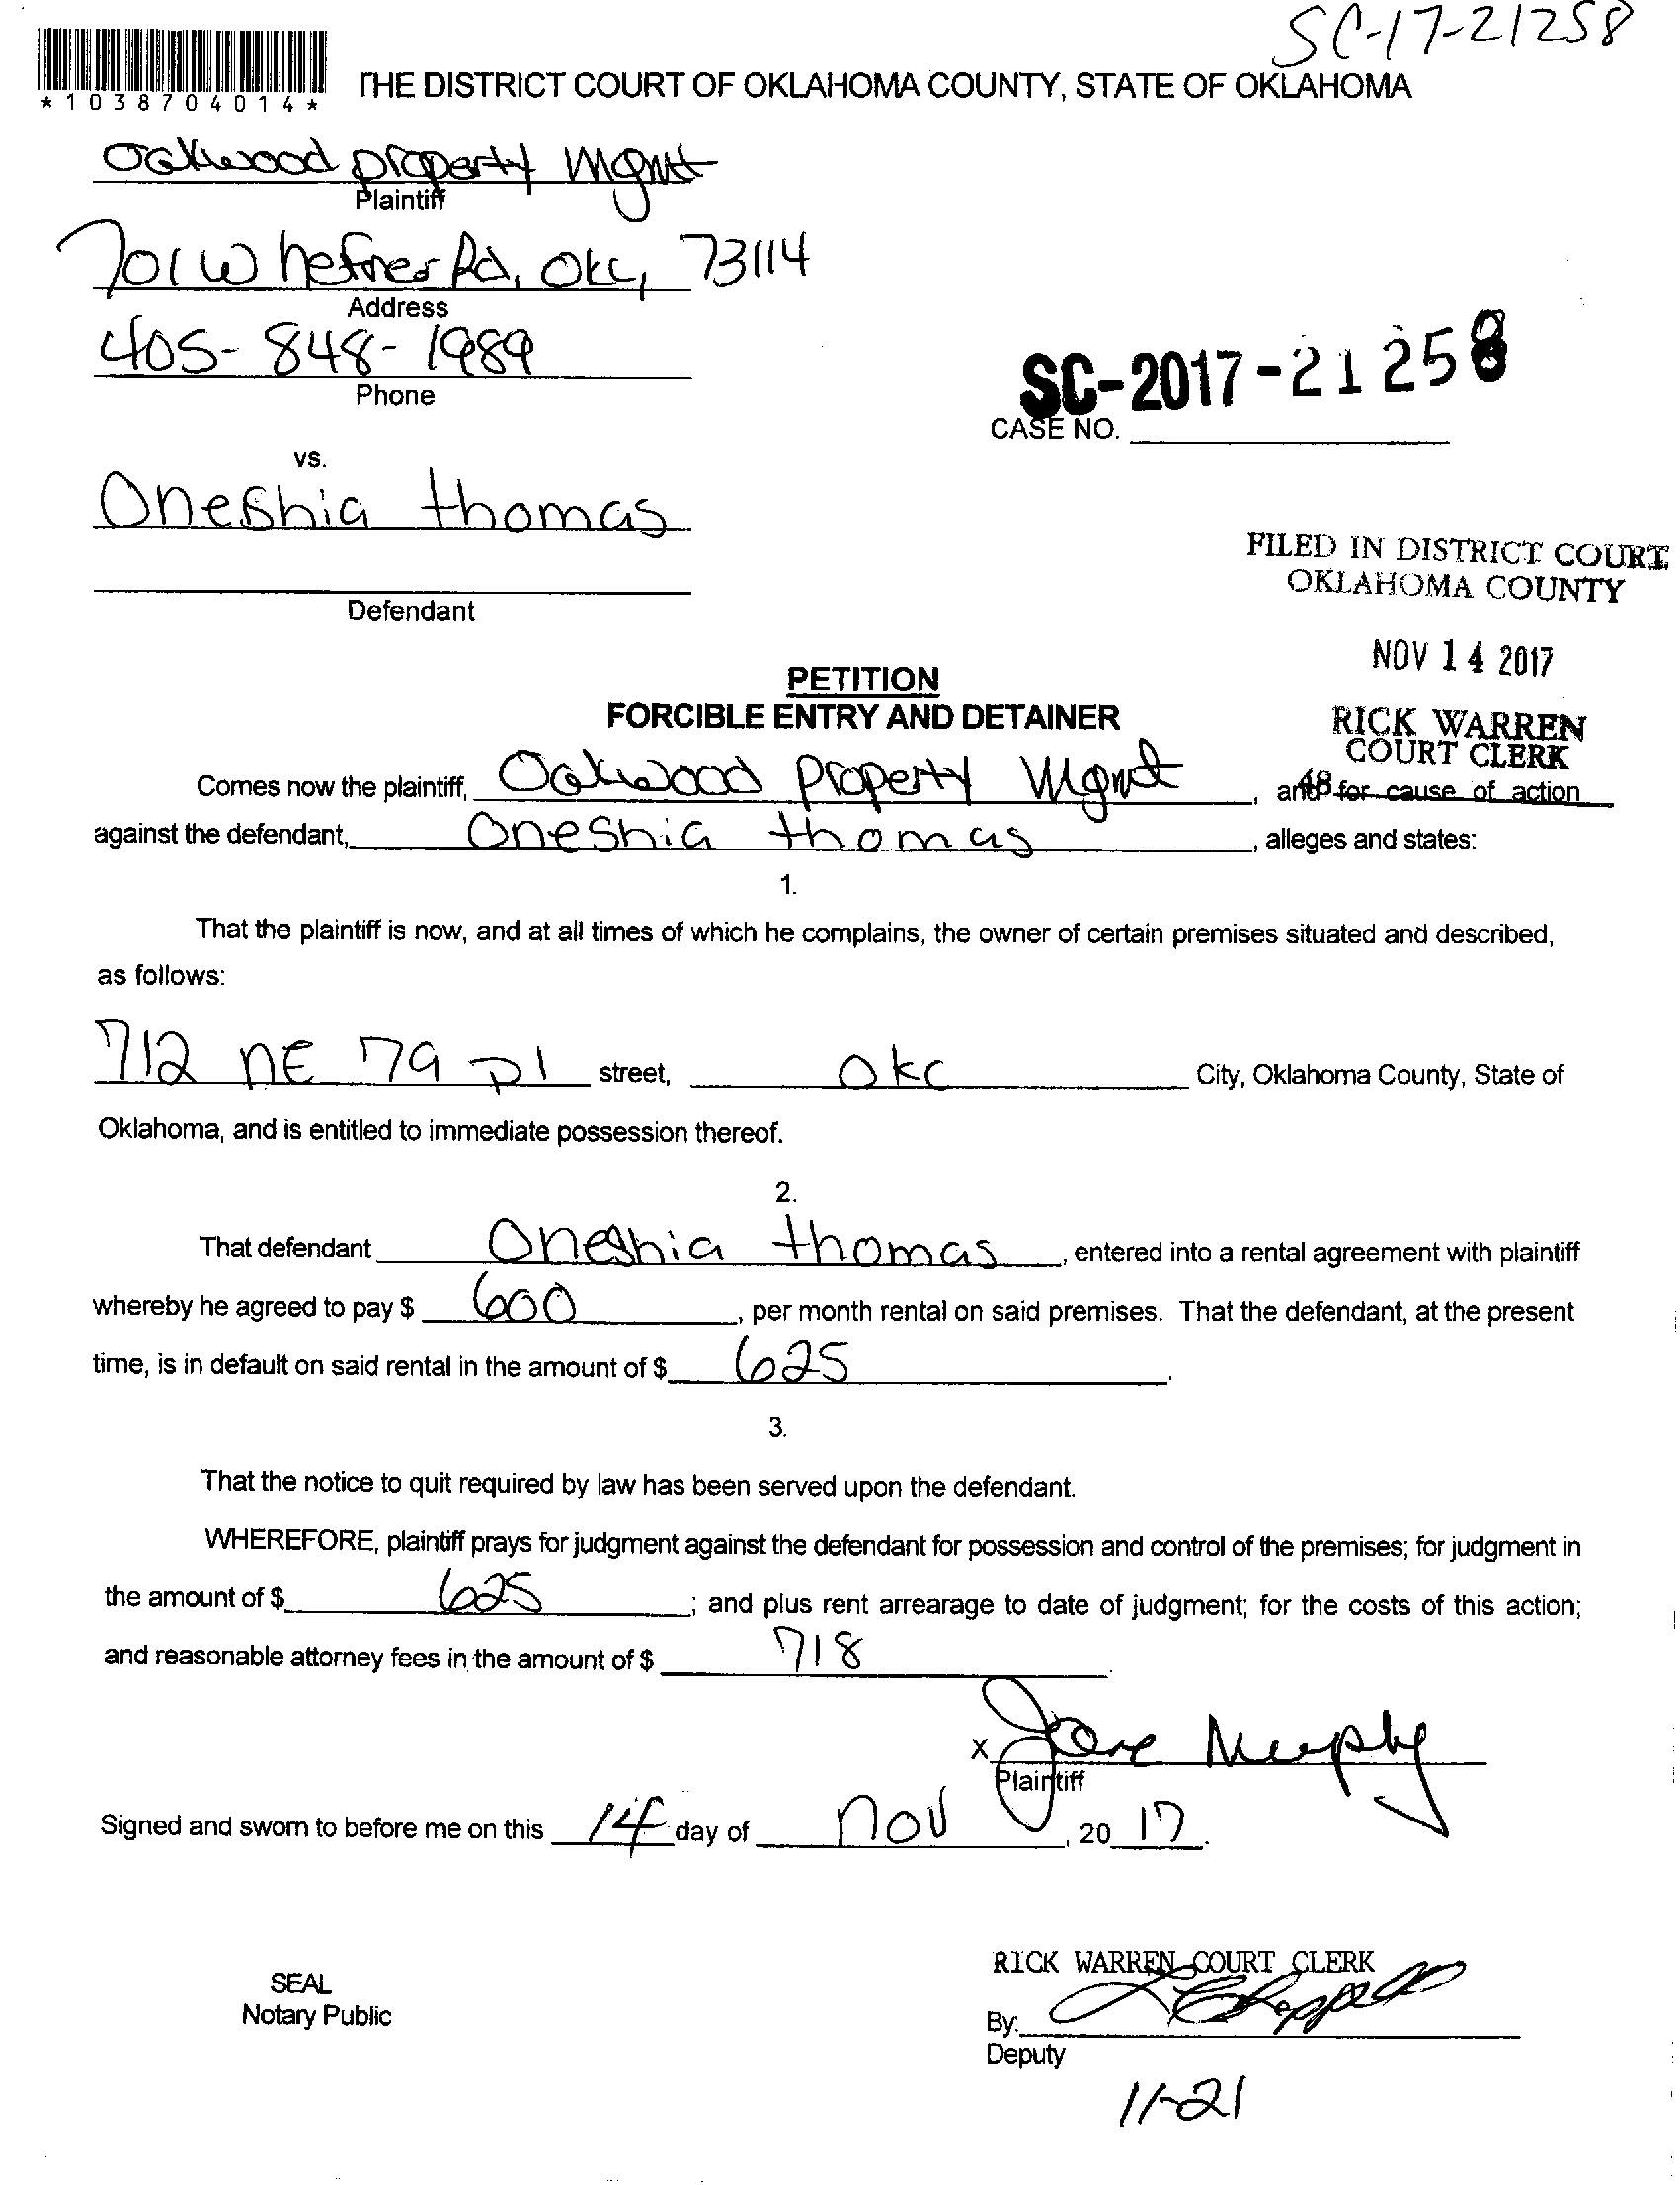 SC-17-21258
*1038704014*
THE DISTRICT COURT OF OKLAHOMA COUNTY, STATE OF OKLAHOMA
Oakwood property Mgmt
Plaintiff
701 W hefner Rd, Okc, 73114
Address
405-848-1989
Phone
SC-2017-21258
CASE NO.
vs.
Oneshia thomas
Defendant
FILED IN DISTRICT COURT
OKLAHOMA COUNTY
NOV 14 2017
RICK WARREN
COURT CLERK
48
PETITION
FORCIBLE ENTRY AND DETAINER
Comes now the plaintiff, Oakwood Property Mgmt, and for cause of action
against the defendant, Oneshia thomas, alleges and states:
1.
That the plaintiff is now, and at all times of which he complains, the owner of certain premises situated and described,
as follows:
712 NE 79 Pl street, Okc City, Oklahoma County, State of
Oklahoma, and is entitled to immediate possession thereof.
2.
That defendant Oneshia thomas, entered into a rental agreement with plaintiff
whereby he agreed to pay $ 600, per month rental on said premises. That the defendant, at the present
time, is in default on said rental in the amount of $ 625.
3.
That the notice to quit required by law has been served upon the defendant.
WHEREFORE, plaintiff prays for judgment against the defendant for possession and control of the premises; for judgment in
the amount of $ 625; and plus rent arrearage to date of judgment; for the costs of this action;
and reasonable attorney fees in the amount of $ 718.
x Murphy
Plaintiff
Signed and sworn to before me on this 14 day of nov, 20 17.
SEAL
Notary Public
RICK WARREN COURT CLERK
By:
Deputy
11-21